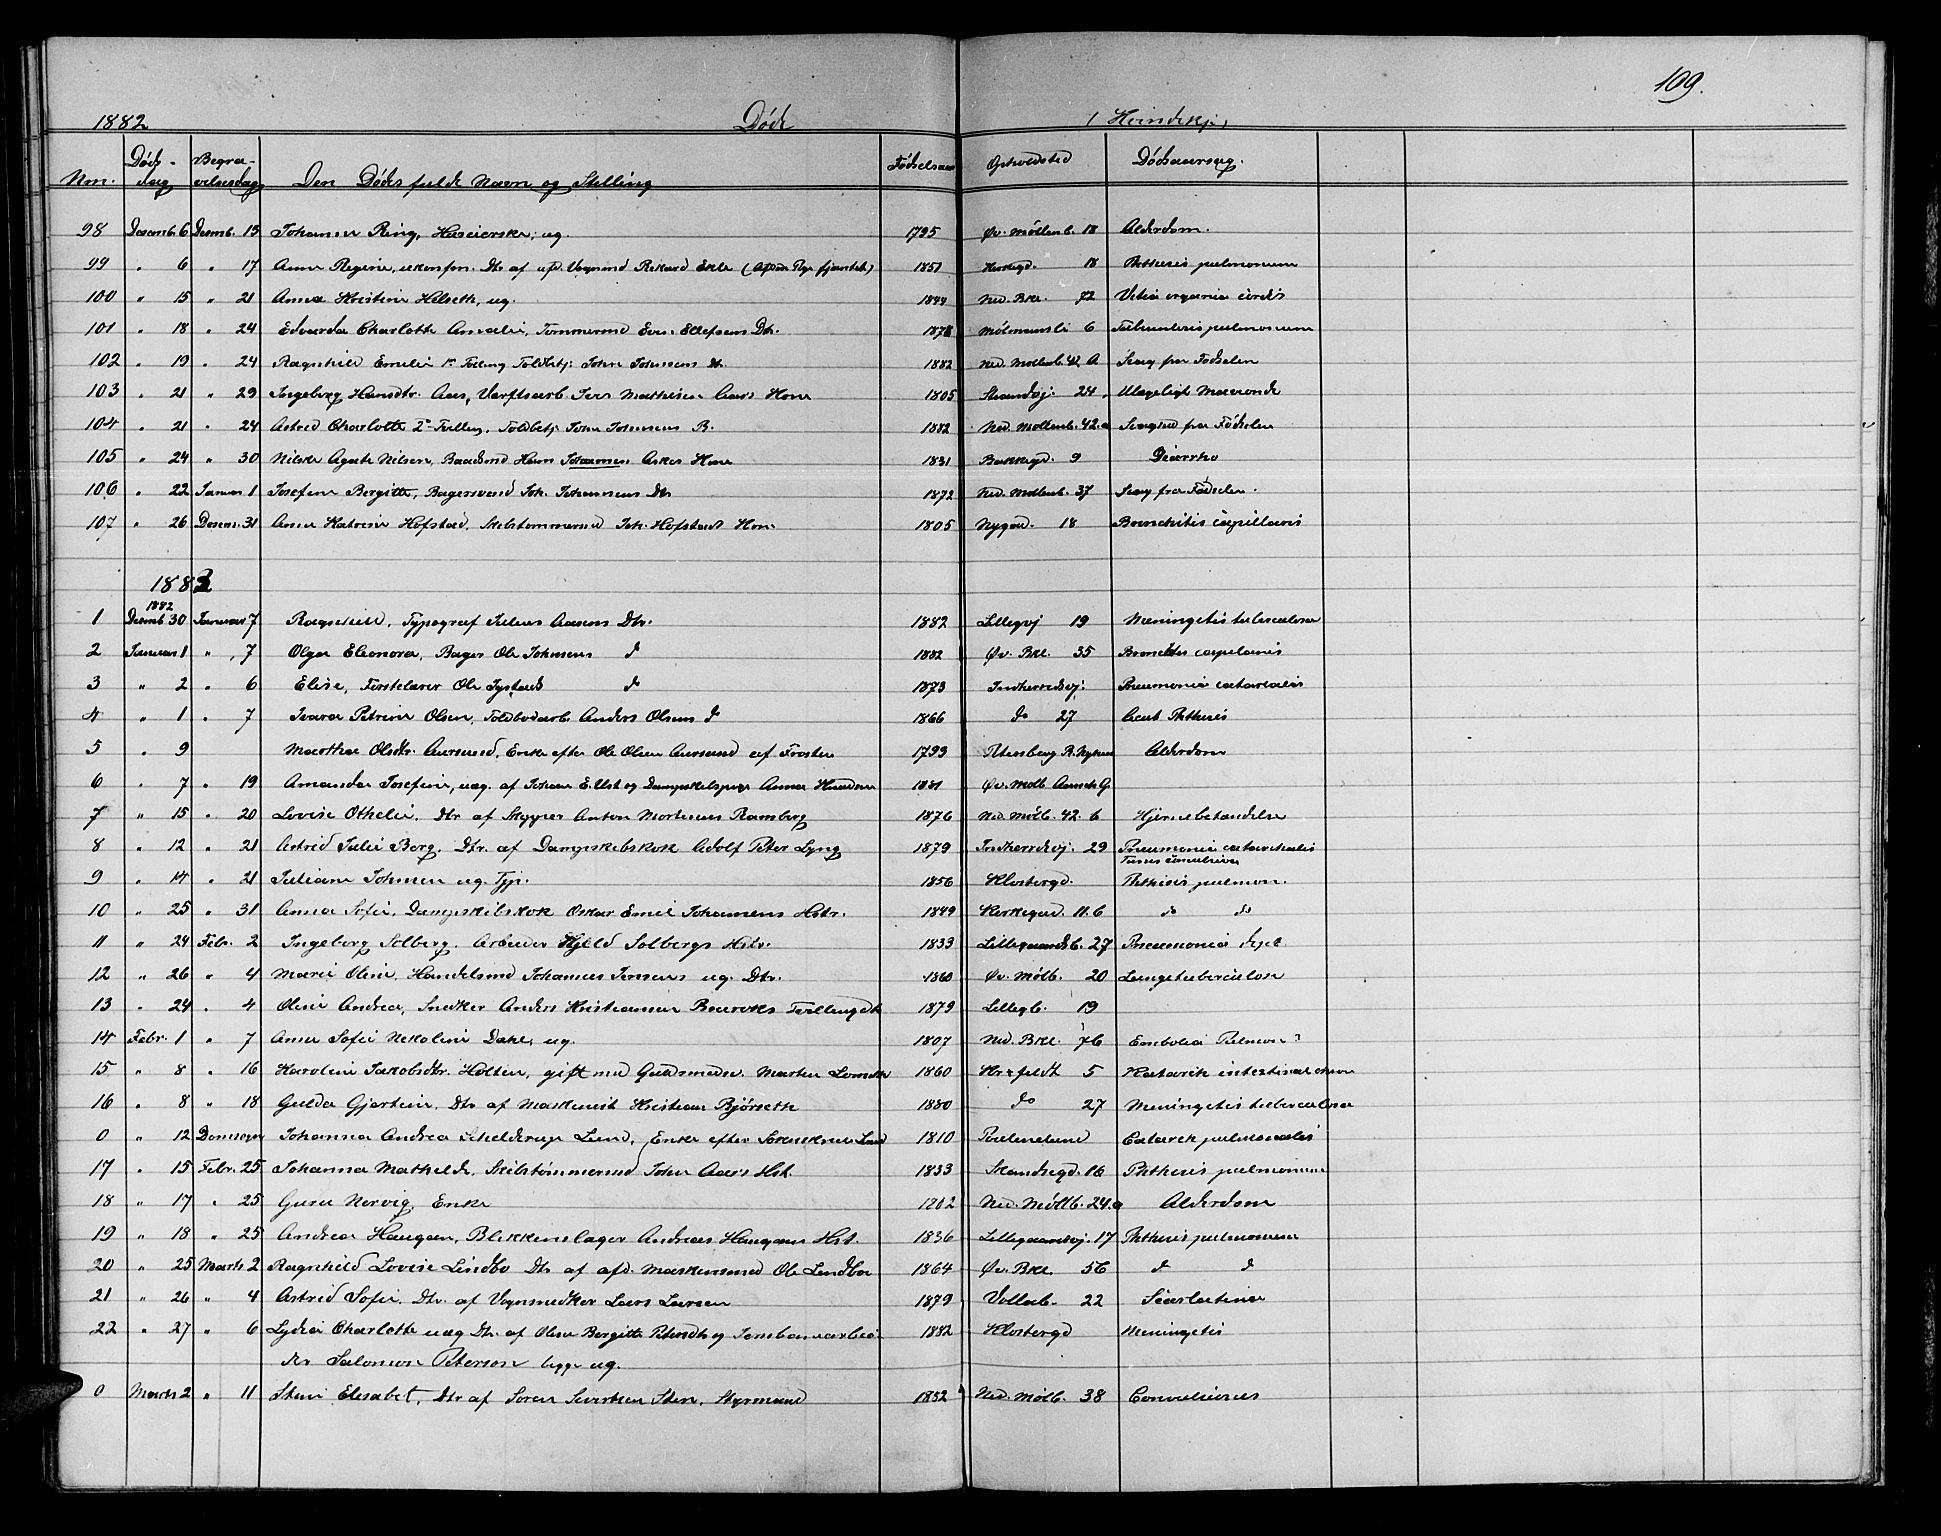 109.
1882 Døde (Kvindekj.)
Nm. Døds-dag Begra-velsesdag Den Dødes fulde Navn og Stilling Fødselsaar Opholdsted Dødsaarsag.
98 Desemb. 6 Desemb. 13 Johanna Ring, ug. 1795 Øv. Møllenb. 18 Alderdom.
99 " 6 " 17 Anne Regine, ukonfirm. Dtr. af afd. Rikard Ekle 1851 Kirkegd. 18 Phthisis pulmonum
100 " 15 " 21 Anna Kristine Helseth, ug. 1844 Ned. Bkl. 72 Vitia organica cordis
101 " 18 " 24 Edvarda Charlotte Amalie, Tømmermd Ellefsens Dtr. 1878 Møllmannsli 6 Tuberculosis pulmonum
102 " 19 " 24 Ragnhild Emilie 1e Tvilling Toldbetj. John Johnsens Dtr. 1882 Ned. Mollenb. 42 A Svag fra Fødselen
103 " 21 " 29 Ingeborg Hansdtr. Aas, Værftsarb. Iver Mathisen Aas's Kone 1805 Strandvj. 24 Ulægeligt Maveonde
104 " 21 " 24 Astrid Charlotte 2e Tvilling, Toldbetj. John Johnsens B. 1882 Ned. Mollenb. 42.a Svaghed fra Fødselen
105 " 24 " 30 Nilske Agate Nilsen, Baadsmd Hans Johannes Askers Kone 1831 Bakkegd. 9 Diarrhe
106 " 22 Januar 1 Josefine Bergitte, Bagersvend Joh. Johansens Dtr 1872 Ned. Mollenb. 37 Svag fra Fødselen.
107 " 26 Desem. 31 Anne Katrine Hofstad, Skibstømmermd Joh. Hofstads Kone. 1805 Nygad. 18 Bronchitis capillaris
1883
1882
1 Desemb. 30 Januar 7 Ragnhild, Typograf Julius Aasens Dtr. 1882 Lillegvj 19 Meningitis tuberculosa
2 Januar 1 " 7 Olga Eleonora, Bager Ole Johnsens d 1882 Øv. Bkl. 35 Bronchitis capilaris
3 " 2 " 6 Elise, Førstelærer Ole Tystads d 1873 Indherredsvj. Pneumonia catarralis
4 " 1 " 7 Ivara Petrine Olsen, Toldbodarb. Anders Olsens d 1866 do 27 Acut Phthisis
5 " 9 Marthe Olsdtr. Aursund, Enke efter Ole Olsen Aursund af Frosten 1793 Alderdom
6 " 7 " 19 Amanda Josefine, uæg. af Johan E. Ust og Dampskibspige Anna Knudsen 1881 Øv. Mølb.
7 " 15 " 20 Lovise Othelie, Dtr af Skipper Anton Mortinus Ramberg 1876 Ned. Mølb. 42. b Hjernebetændelse
8 " 12 " 21 Astrid Julie Borg, Dtr. af Dampskibskok Adolf Peter Lyng 1879 Indherredsvj. 29 Pneumonia catarrhalis
Tussis convulsiva
9 " 14 " 21 Juliane Johnsen ug. Tjp. 1856 Klostergd. Phthisis pulmon.
10 " 25 " 31 Anna Sofie, Dampskibskok Oskar Emil Johannesens Hstr. 1849 Kirkegad. 11.b do do
11 " 24 Febr. 2 Ingeborg Solberg, Arbeider Kjeld Solbergs Hstr. 1833 Lillegaardsb. 27 Pneumonia dupl.
12 " 26 " 4 Marie Oline, Handelsmd Johannes Jensens ug. Dtr. 1860 Øv. Mølb. 20 Lungetuberculose
13 " 24 " 4 Oline Andrea, Snedker Anders Kristiansen Tvillingdt 1879 Lillegb. 19
14 Febr. 1 " 7 Anne Sofie Nikoline Dahl, ug. 1807 Ned. Bkl. 76 Embolia Pulmon?
15 " 8 " 16 Karoline Jakobsdtr. Holten, gift med Guldsmedsv. Martin 1860 Kr. feldt 5 Katarrh intestinal chron
16 " 8 " 18 Gulda Gjertine, Dtr af Maskinist Kristian Bjørseth 1880 do 27 Meningitis tuberculosa
0 " 12 Domsogn Johanna Andrea Schelderup Lund, Enke efter Lund 1810 Catarrh pulmonalis
17 " 15 Febr. 25 Johanna Mathilde, Skibstømmermd John Aas's Hst. 1833 Strandvegd. 16 Phthisis pulmonum
18 " 17 " 25 Guru Norvig, Enke 1802 Ned. Mølb. 24.a Alderdom
19 " 18 " 25 Andrea Haugan, Blikkenslager Andreas Haugans Hst. 1836 Lillegaardsvj. 17 Phthisis pulmonum
20 " 25 Marts 2 Ragnhild Lovise Lindbo Dtr af afd. Ole Lindbo 1864 Øv. Bkl. 56 d d
21 " 26 " 4 Astrid Sofie, Dtr. af Vognsnedker Lars Larsen 1879 Vollab. 22 Scarlatina
22 " 27 " 6 Lydia Charlotte uæg Dtr. af Oline Bergitte Petersdtr og Jernbanearbei- 1882 Klostergd Meningitis
der Salomon Peterson begge ug.
0 Marts 2 " 11 Stina Elisabet, Dtr af Soren Sivertsen Sten, Styrmand 1882 Ned. Mølb. 38 Convulsiones